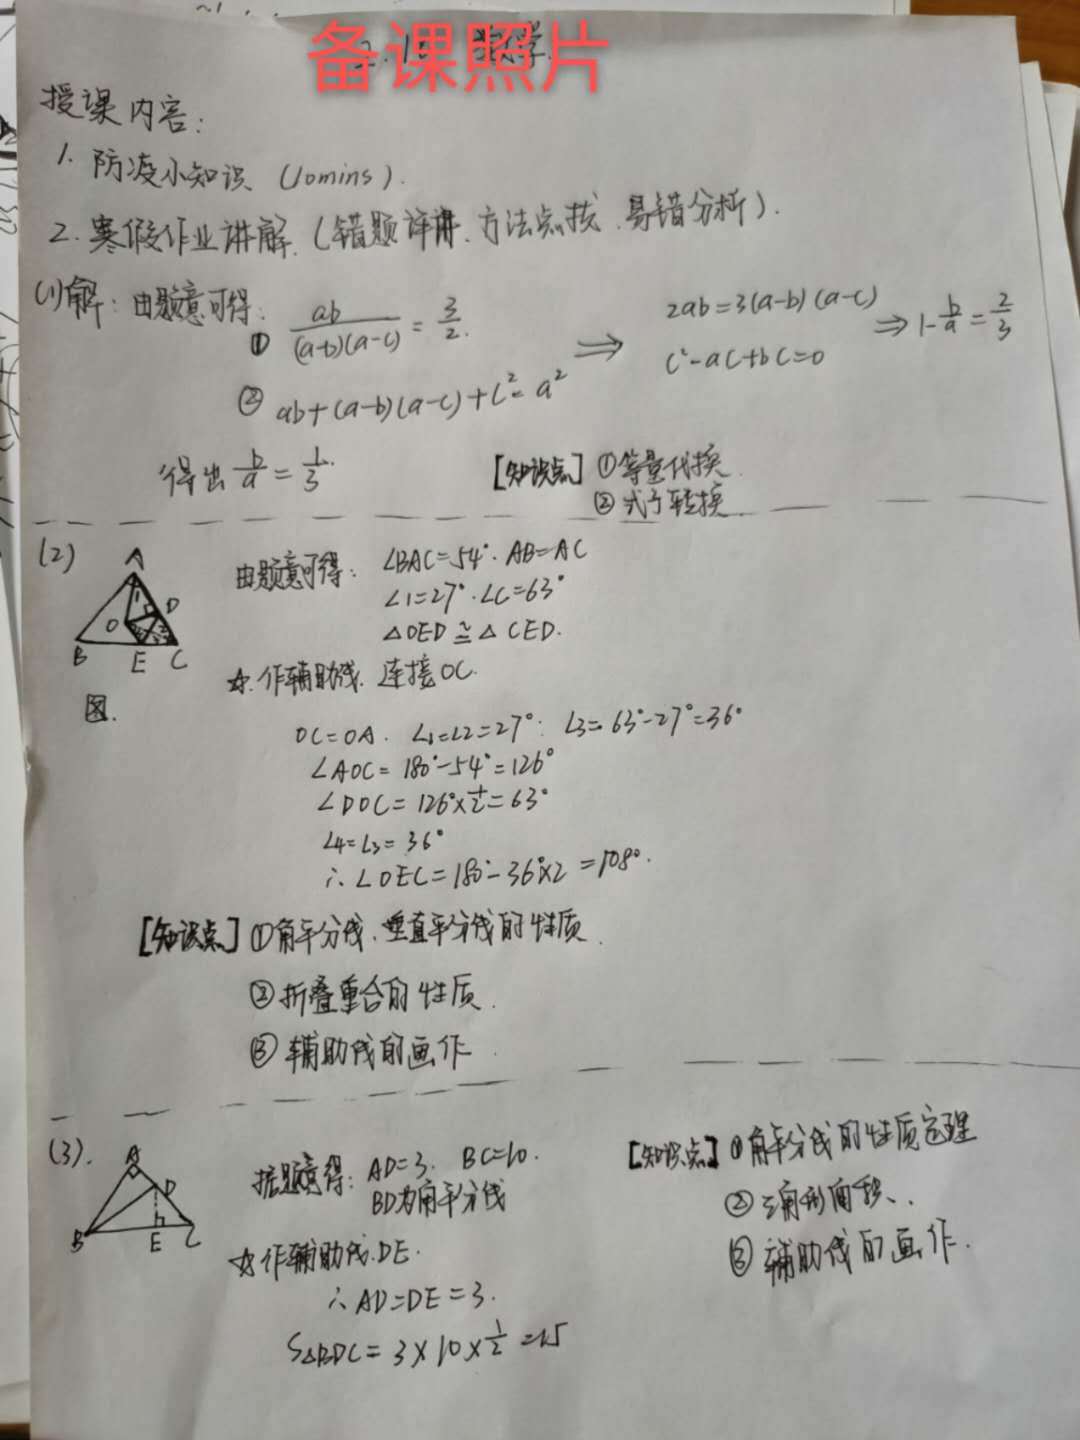 备课照片
数学
授课内容:
1. 防凌小知识 (10mins).
2. 寒假作业讲解. (错题详讲、方法点拨、易错分析).
(1)解: 由题意可得:
① ab/(a-b)(a-c) = 3/2.
② ab+(a-b)(a-c)+c²=a²
⇒
2ab=3(a-b)(a-c)
c²-ac+bc=0
⇒ 1-b/a=2/3
得出 b/a = 1/3.
[知识点] ①等量代换.
② 式子转换.
(2)
A
1
D
O
B E C
图.
由题意可得: ∠BAC=54°. AB=AC
∠1=27°. ∠C=63°
△OED≌△CED.
☆.作辅助线. 连接OC.
OC=OA. ∠1=∠2=27°. ∠3=63°-27°=36°
∠AOC=180°-54°=126°
∠DOC=126°×1/2=63°
∠4=∠3=36°
∴∠OEC=180°-36°×2=108°.
[知识点] ①角平分线、垂直平分线的性质.
②折叠重合的性质.
③ 辅助线的画作.
(3).
A
D
B E C
据题意得: AD=3. BC=10.
BD为角平分线
☆作辅助线.DE.
∴AD=DE=3.
S△BDC=3×10×1/2=15
[知识点] ①角平分线的性质定理
②三角形面积.
③ 辅助线的画作.